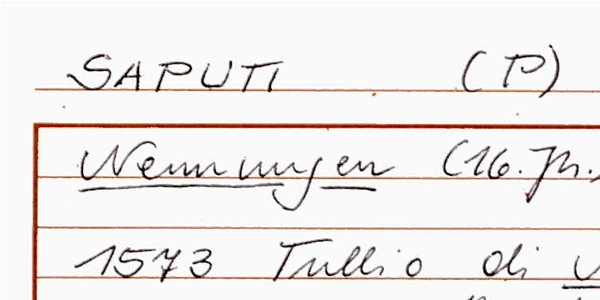 SAPUTI (P)
Nennungen (16. Jh.)
1573 Tullio di